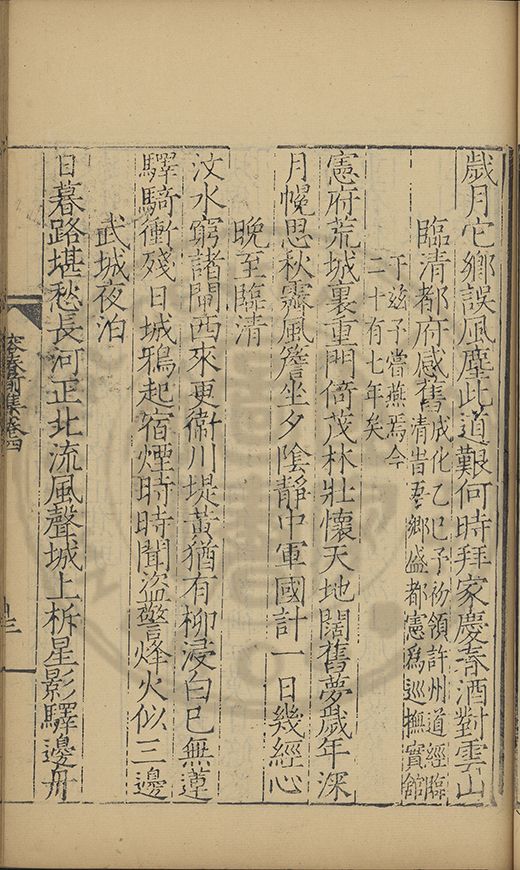 歲月它鄉誤風塵此道艱何時拜家慶春酒對雲山
臨清都府感舊
成化乙巳予初領許州道經臨
清吉吾鄉盛都憲爲巡撫實舘
于兹予嘗燕焉今
二十有七年矣
憲府荒城裏重門倚茂林壯懷天地闊舊夢歲年深
月幌思秋霽風簷坐夕陰靜中軍國計一日幾經心
晚至臨清
汶水窮諸閘西來更衞川堤黃猶有柳浸白已無蓮
驛騎衝殘日城鴉起宿煙時時聞盜警烽火似三邊
武城夜泊
日暮路堪愁長河正北流風聲城上柝星影驛邊舟
集卷四